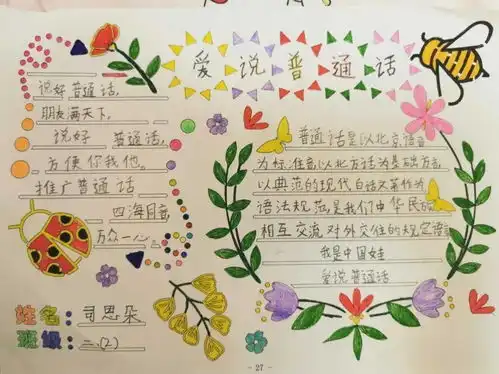 爱说普通话
说好普通话,
朋友满天下。
说好 普通话,
方便你我他。
推广普通话
四海同音,
万众一心。
姓名:司思朵
班级:二.(2)
普通话是以北京语音
为标准音,以北方话为基础方言,
以典范的现代白话文著作为
语法规范,是我们中华民族
相互交流对外交往的规定语言
我是中国娃
爱说普通话
- 27 -